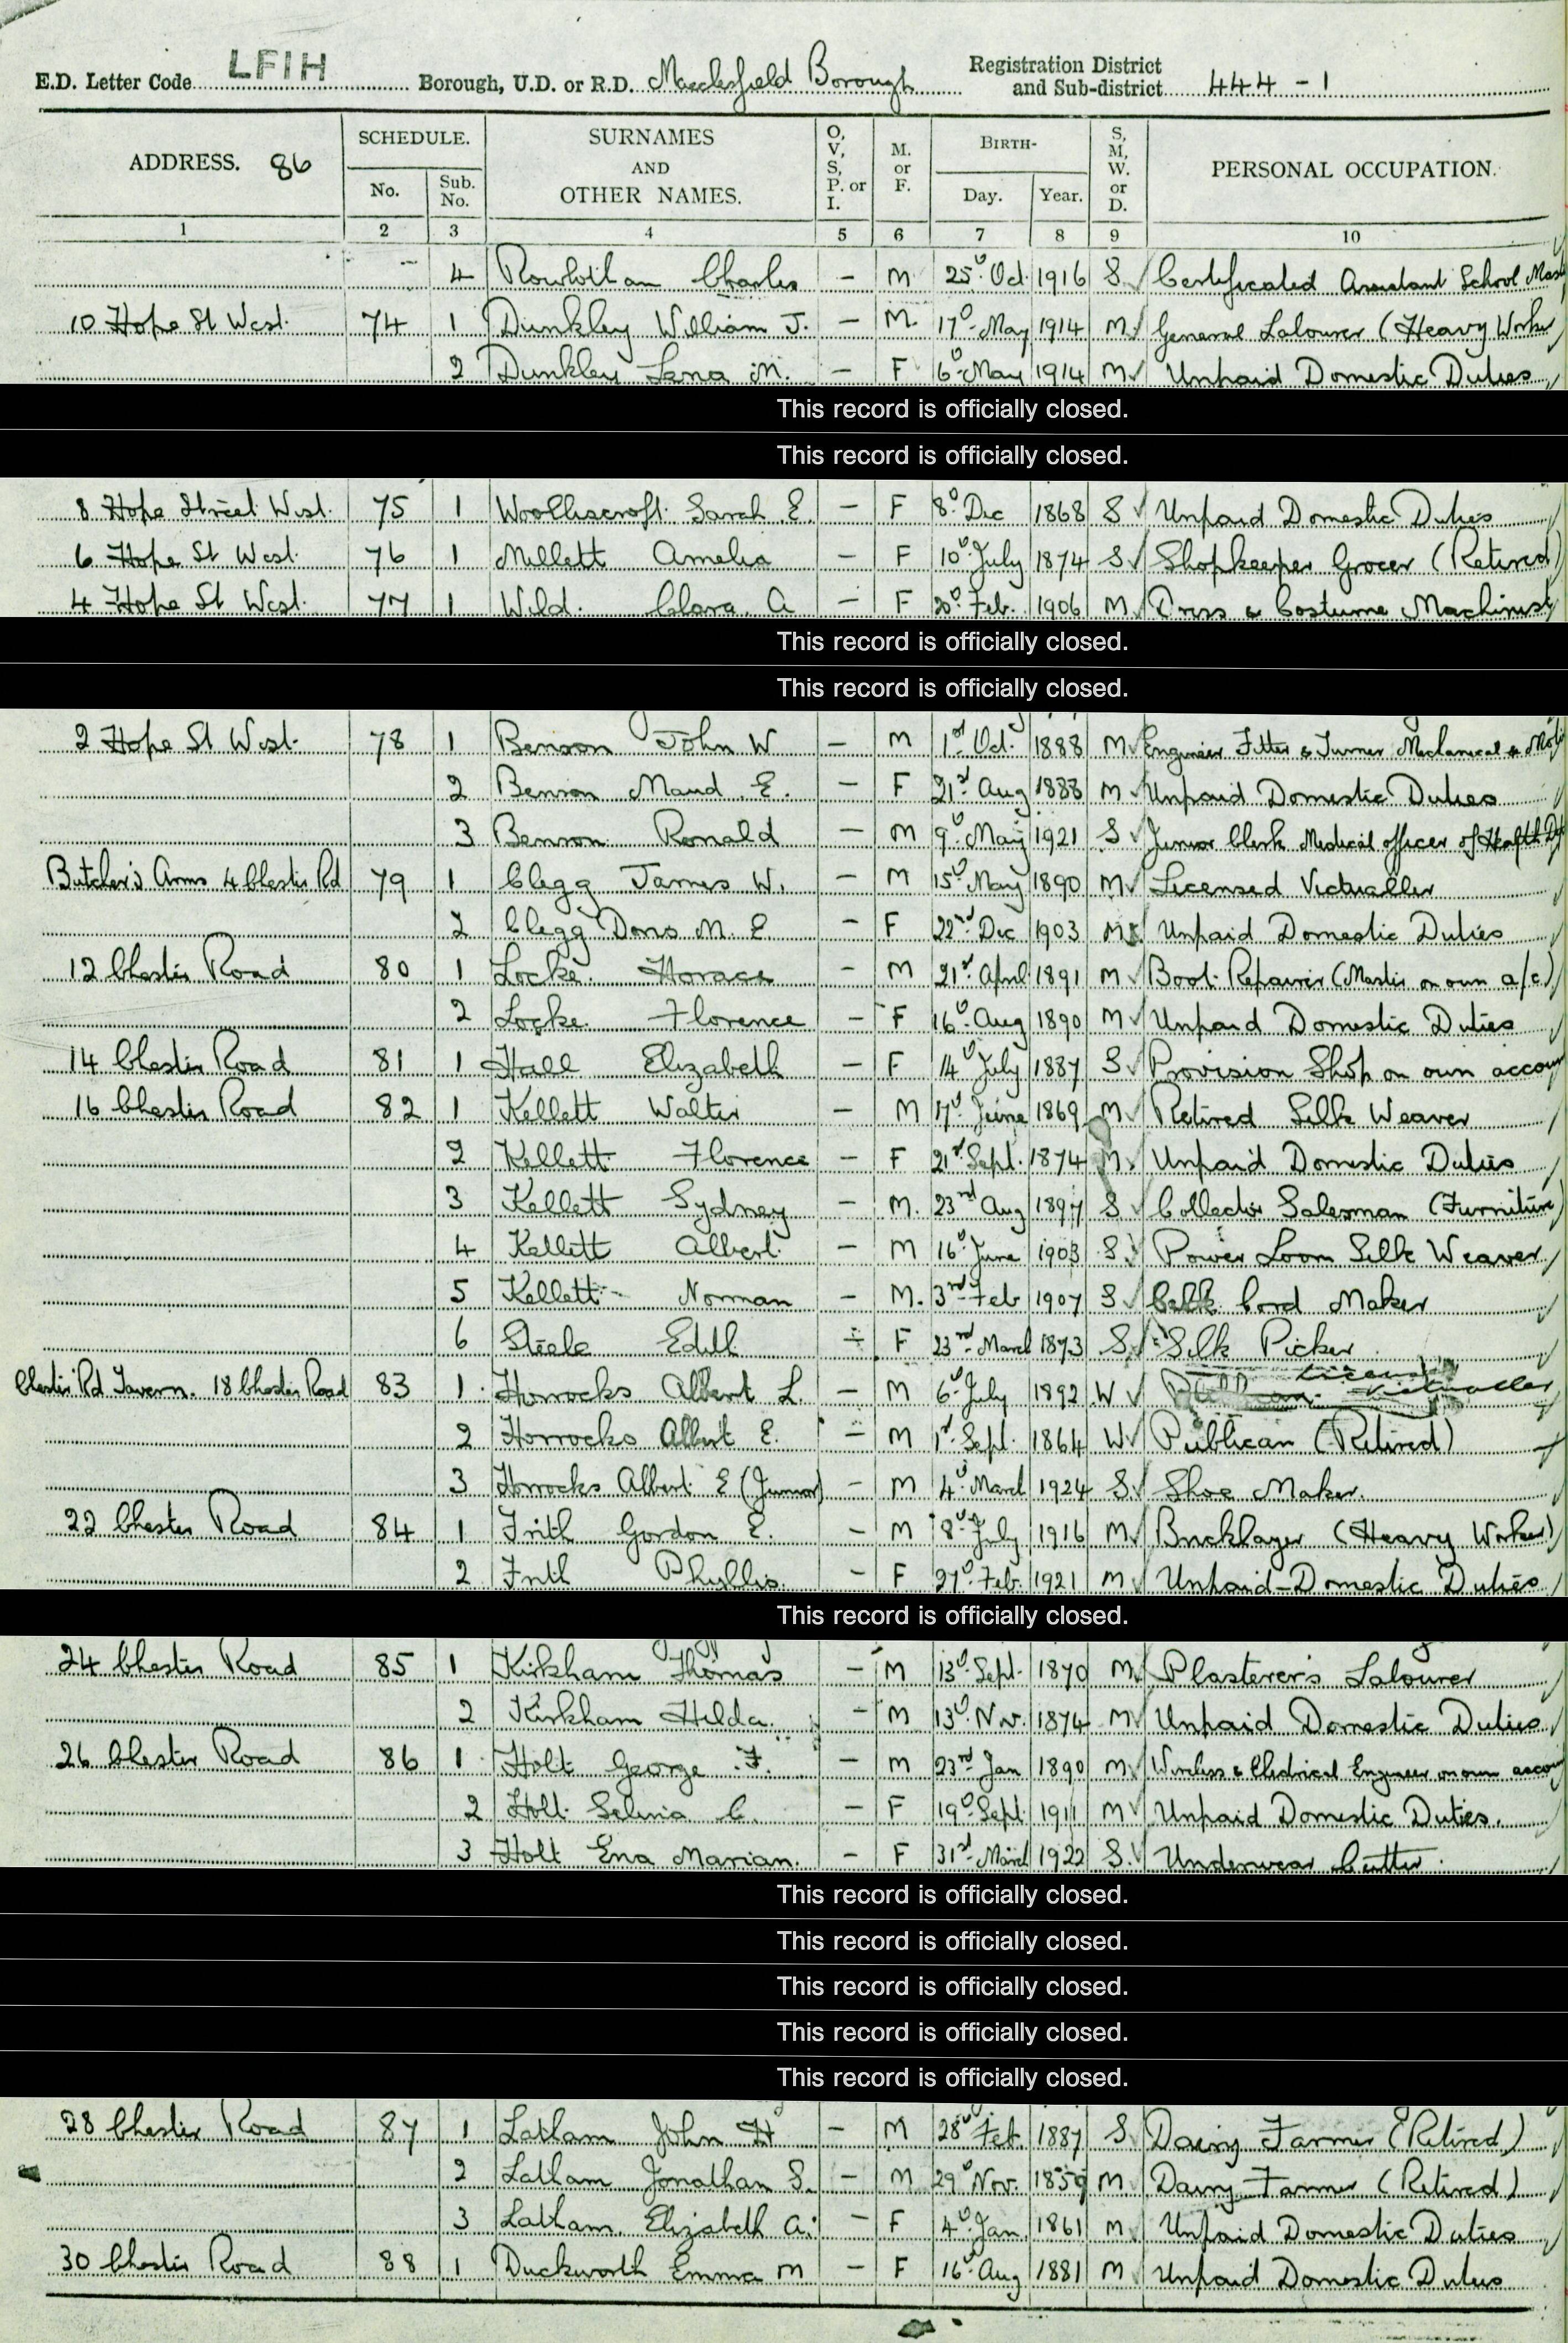 E.D. Letter Code LFIH Borough, U.D. or R.D. Macclesfield Borough Registration District and Sub-district 444 - 1
ADDRESS. 86 SCHEDULE. No. Sub. No. SURNAMES AND OTHER NAMES. O, V, S, P. or I. M. or F. BIRTH- Day. Year. S, M, W. or D. PERSONAL OCCUPATION.
1 2 3 4 5 6 7 8 9 10
4 Charles — M 25° Oct 1916 S Certificated Assistant School
10 Hope St West. 74 1 Dunkley William J. — M. 17° May 1914 M General Labourer (Heavy Worker
2 Dunkley Lena M. — F 6° May 1914 M Unpaid Domestic Duties
This record is officially closed.
This record is officially closed.
8 Hope Street West. 75 1 Woolliscroft Sarah E. — F 8° Dec 1868 S Unpaid Domestic Duties
6 Hope St West. 76 1 Millett Amelia — F 10° July 1874 S Shopkeeper Grocer (Retired)
4 Hope St West. 77 1 Wild. Clara A — F 20° Feb. 1906 M Dress & Costume Machinist
This record is officially closed.
This record is officially closed.
2 Hope St West. 78 1 Benson John W — M 1st Oct. 1888 M Engineer Fitter & Turner Mechanical &
2 Benson Maud E. — F 21st Aug 1888 M Unpaid Domestic Duties
3 Benson Ronald — M 9° May 1921 S Junior Clerk Medical officer of Health
Butcher's Arms 4 Chester Rd 79 1 Clegg James W. — M 15° May 1890 M Licensed Victualler
2 Clegg Doris M. E — F 22nd Dec 1903 M Unpaid Domestic Duties
12 Chester Road 80 1 Locke Horace — M 21st April 1891 M Boot Repairer (Master on own a/c)
2 Locke Florence — F 16° Aug 1890 M Unpaid Domestic Duties
14 Chester Road 81 1 Hall Elizabeth — F 14° July 1887 S Provision Shop on own accoun
16 Chester Road 82 1 Kellett Walter — M 17° June 1869 M Retired Silk Weaver
2 Kellett Florence — F 21st Sept. 1874 M Unpaid Domestic Duties
3 Kellett Sydney — M. 23rd Aug 1897 S Collector Salesman (Furniture)
4 Kellett Albert — M 16° June 1903 S Power Loom Silk Weaver
5 Kellett Norman — M. 3rd Feb 1907 S Cord Maker
6 Steele Edith — F 23rd March 1873 S Silk Picker
Chester Rd Tavern. 18 Chester Road 83 1 Horrocks Albert L. — M 6° July 1892 W Victualler
2 Horrocks Albert E. — M 1st Sept. 1864 W Publican (Retired)
3 Horrocks Albert E (Junior) — M 4° March 1924 S Shoe Maker.
22 Chester Road 84 1 Frith Gordon E. — M 8° July 1916 M Bricklayer (Heavy Worker)
2 Frith Phyllis — F 27° Feb. 1921 M Unpaid Domestic Duties
This record is officially closed.
24 Chester Road 85 1 Kirkham Thomas — M 13° Sept. 1870 M Plasterer's Labourer
2 Kirkham Hilda. — M 13° Nov. 1874 M Unpaid Domestic Duties
26 Chester Road 86 1 Holt George F. — M 23rd Jan 1890 M Wireless & Electrical Engineer on own accoun
2 Holt Selina C. — F 19° Sept 1911 M Unpaid Domestic Duties.
3 Holt Ena Marian. — F 31st March 1922 S. Underwear Cutter.
This record is officially closed.
This record is officially closed.
This record is officially closed.
This record is officially closed.
This record is officially closed.
28 Chester Road 87 1 Latham John H — M 28° Feb. 1887 S Dairy Farmer (Retired)
2 Latham Jonathan S. — M 29° Nov. 1859 M Dairy Farmer (Retired)
3 Latham Elizabeth A. — F 4° Jan 1861 M Unpaid Domestic Duties
30 Chester Road 88 1 Duckworth Emma M — F 16° Aug 1881 M Unpaid Domestic Duties